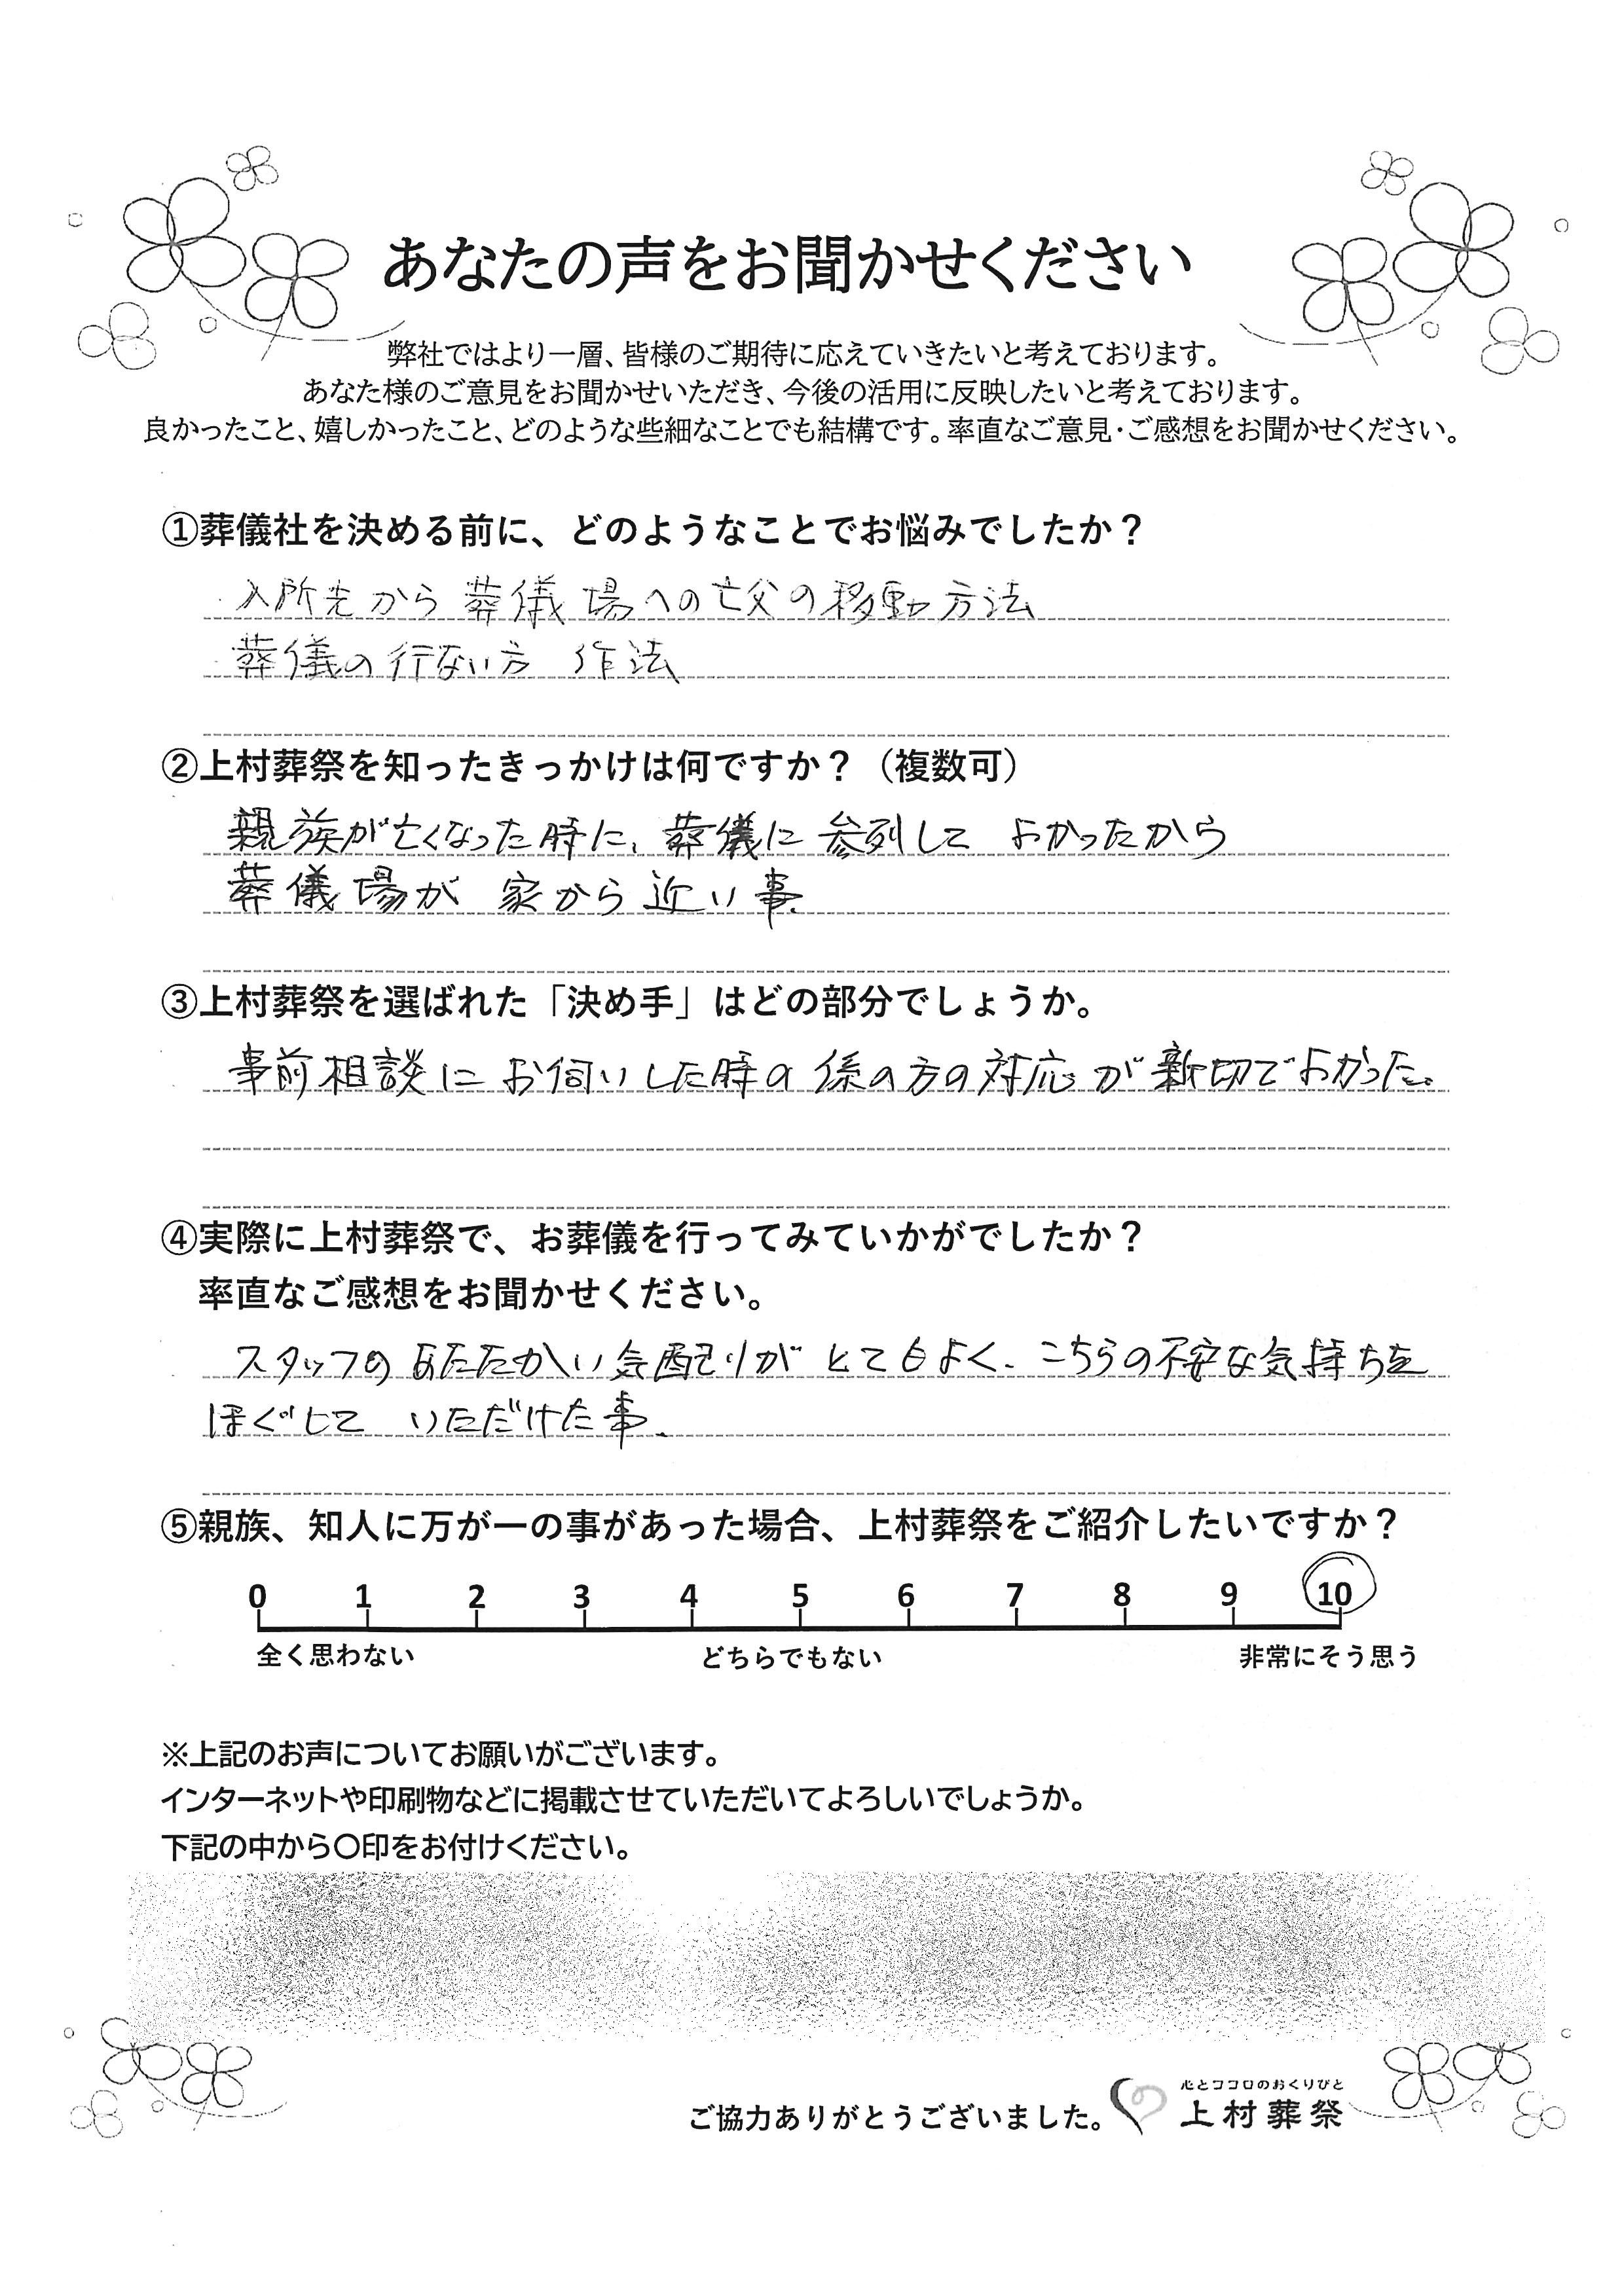 あなたの声をお聞かせください
弊社ではより一層、皆様のご期待に応えていきたいと考えております。
あなた様のご意見をお聞かせいただき、今後の活用に反映したいと考えております。
良かったこと、嬉しかったこと、どのような些細なことでも結構です。率直なご意見・ご感想をお聞かせください。
①葬儀社を決める前に、どのようなことでお悩みでしたか？
・入所先から葬儀場への亡父の移動方法
・葬儀の行ない方 作法
②上村葬祭を知ったきっかけは何ですか？（複数可）
親族が亡くなった時に、葬儀に参列して よかったから
葬儀場が 家から近い事.
③上村葬祭を選ばれた「決め手」はどの部分でしょうか。
事前相談に お伺いした時の係の方の対応が親切でよかった。
④実際に上村葬祭で、お葬儀を行ってみていかがでしたか？
率直なご感想をお聞かせください。
スタッフの あたたかい気配りが とてもよく、こちらの不安な気持ちを
ほぐして いただけた事.
⑤親族、知人に万が一の事があった場合、上村葬祭をご紹介したいですか？
0 1 2 3 4 5 6 7 8 9 10
全く思わない どちらでもない 非常にそう思う
※上記のお声についてお願いがございます。
インターネットや印刷物などに掲載させていただいてよろしいでしょうか。
下記の中から〇印をお付けください。
心とココロのおくりびと
ご協力ありがとうございました。 上村葬祭